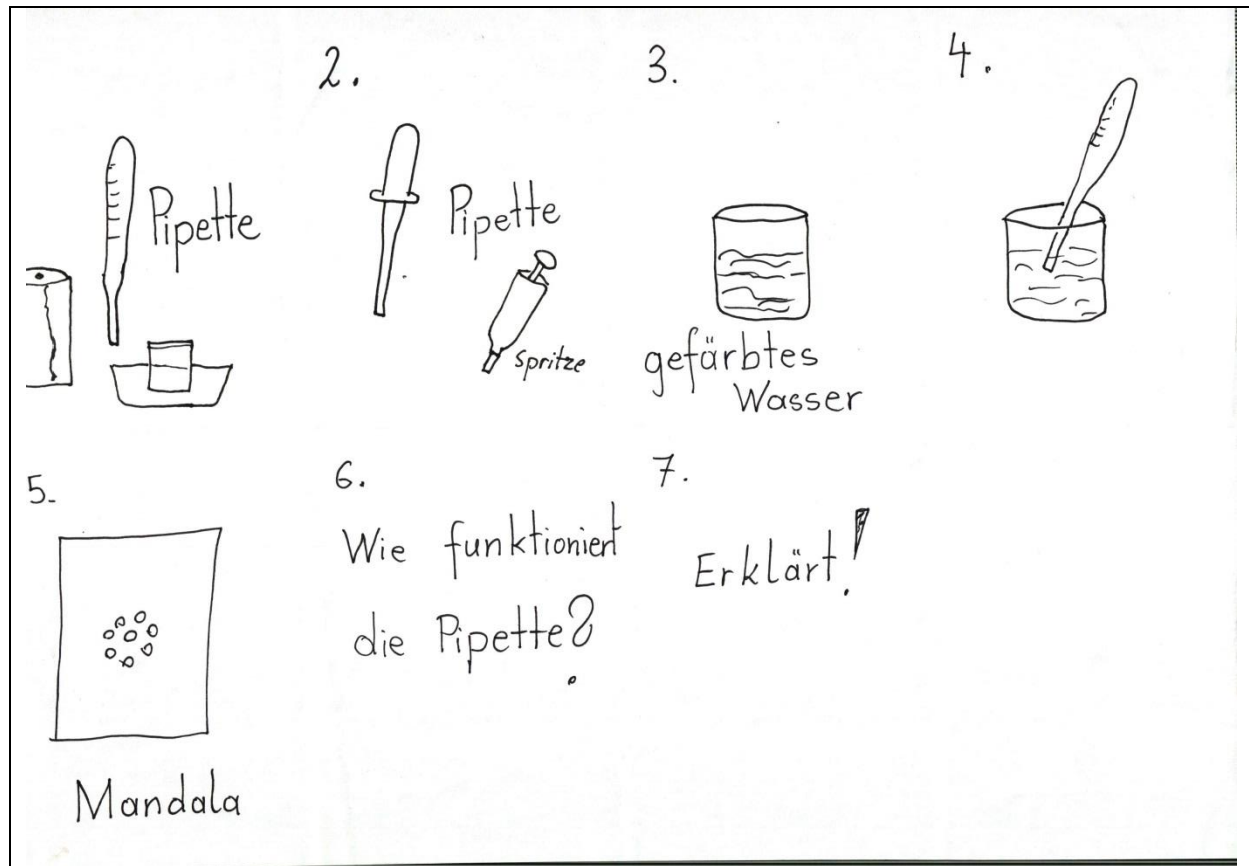 2.
3.
4.
Pipette
Pipette
Spritze
gefärbtes
Wasser
5.
Mandala
6.
Wie funktioniert
die Pipette?
7.
Erklärt!